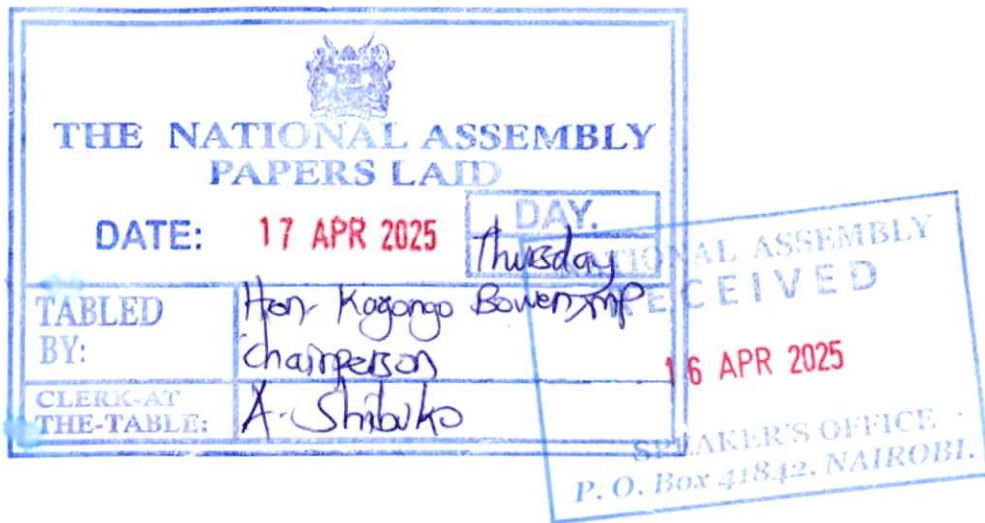 THE NATIONAL ASSEMBLY
PAPERS LAID
DATE: 17 APR 2025
DAY.
Thursday
TABLED BY:
Hon Kagongo Bowen, MP
Chairperson
CLERK-AT THE-TABLE:
A. Shibuko
NATIONAL ASSEMBLY
RECEIVED
16 APR 2025
SPEAKER'S OFFICE
P. O. Box 41842, NAIROBI.